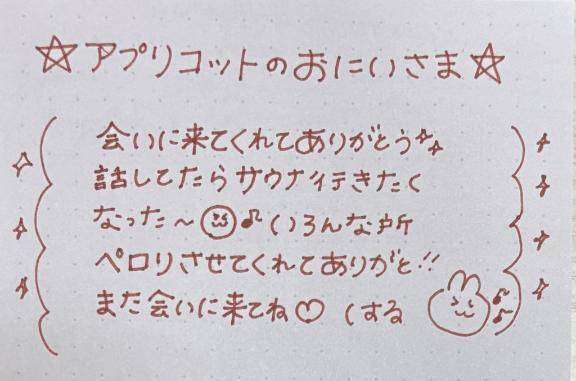 ☆アプリコットのおにいさま☆
会いに来てくれてありがとう
話してたらサウナ行きたく
なった〜♪いろんな所
ペロリさせてくれてありがと!!
また会いに来てね♡ (する